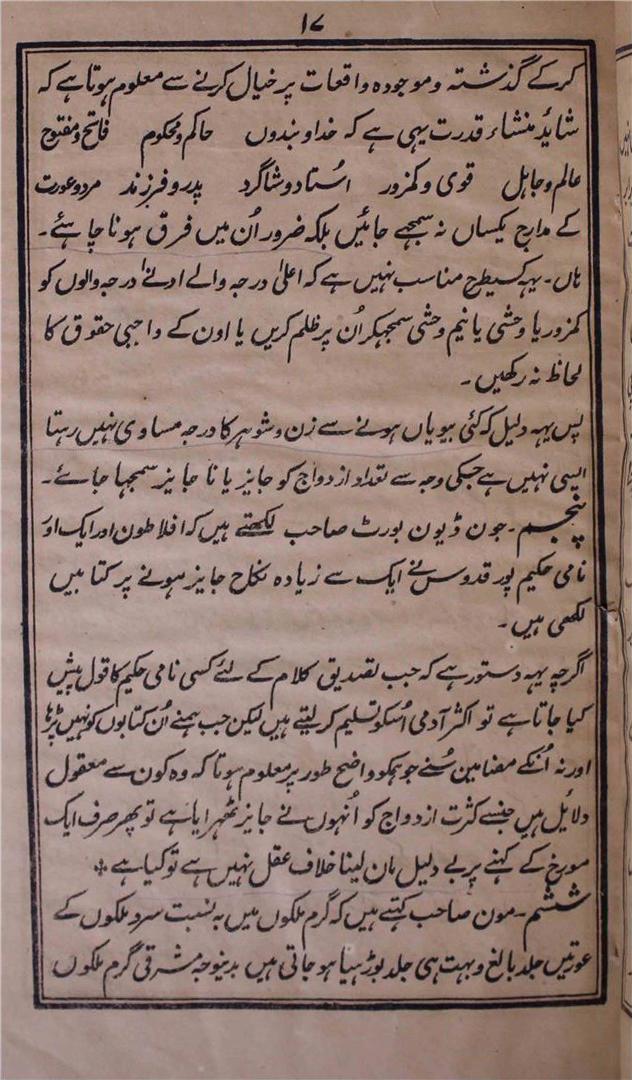 ۱۷
کرکے گذشتہ و موجودہ واقعات پر خیال کرنے سے معلوم ہوتا ہے کہ
شائد منشاء قدرت یہی ہے کہ خداوبندوں حاکم ومحکوم فاتح و مفتوح
عالم وجاہل قوی وکمزور اُستاد وشاگرد پدر وفرزند مردوعورت
کے مدارج یکساں نہ سمجھے جائیں بلکہ ضرور اُن میں فرق ہونا چاہئے۔
ہاں۔ یہہ کسیطرح مناسب نہیں ہے کہ اعلیٰ درجہ والے ادنےٰ درجہ والوں کو
کمزور یا وحشی یا نیم وحشی سمجہکر اُن پر ظلم کریں یا اون کے واجبی حقوق کا
لحاظ نہ رکھیں۔
پس یہہ دلیل کہ کئی بیویاں ہونے سے زن وشوہر کا درجہ مساوی نہیں رہتا
ایسی نہیں ہے جسکی وجہ سے تعداد ازدواج کو جایز یا نا جایز سمجہا جائے۔
پنجم۔ جون ڈیون پورٹ صاحب لکھتے ہیں کہ افلاطون اور ایک اَوْر
نامی حکیم پورقدوس نے ایک سے زیادہ نکاح جایز ہونے پر کتابیں
لکھی ہیں۔
اگرچہ یہہ دستور ہے کہ جب تصدیق کلام کے لئے کسی نامی حکیم کا قول پیش
کیا جاتا ہے تو اکثر آدمی اُسکو تسلیم کر لیتے ہیں لیکن جب ہمنے اُن کتابوں کو نہیں پڑہا
اور نہ اُنکے مضامین سُنے جو ہمکو واضح طور پر معلوم ہوتا کہ وہ کون سے معقول
دلائیل ہیں جنسے کثرت ازدواج کو اُنہوں نے جایز ٹھہرایا ہے تو پھر صرف ایک
مورخ کے کہنے پر بے دلیل مان لینا خلاف عقل نہیں ہے تو کیا ہے *
ششم۔ مون صاحب کہتے ہیں کہ گرم ملکوں میں بہ نسبت سرد ملکوں کے
عورتیں جلد بالغ و بہت ہی جلد بوڑہیا ہو جاتی ہیں بدینوجہ مشرقی گرم ملکوں